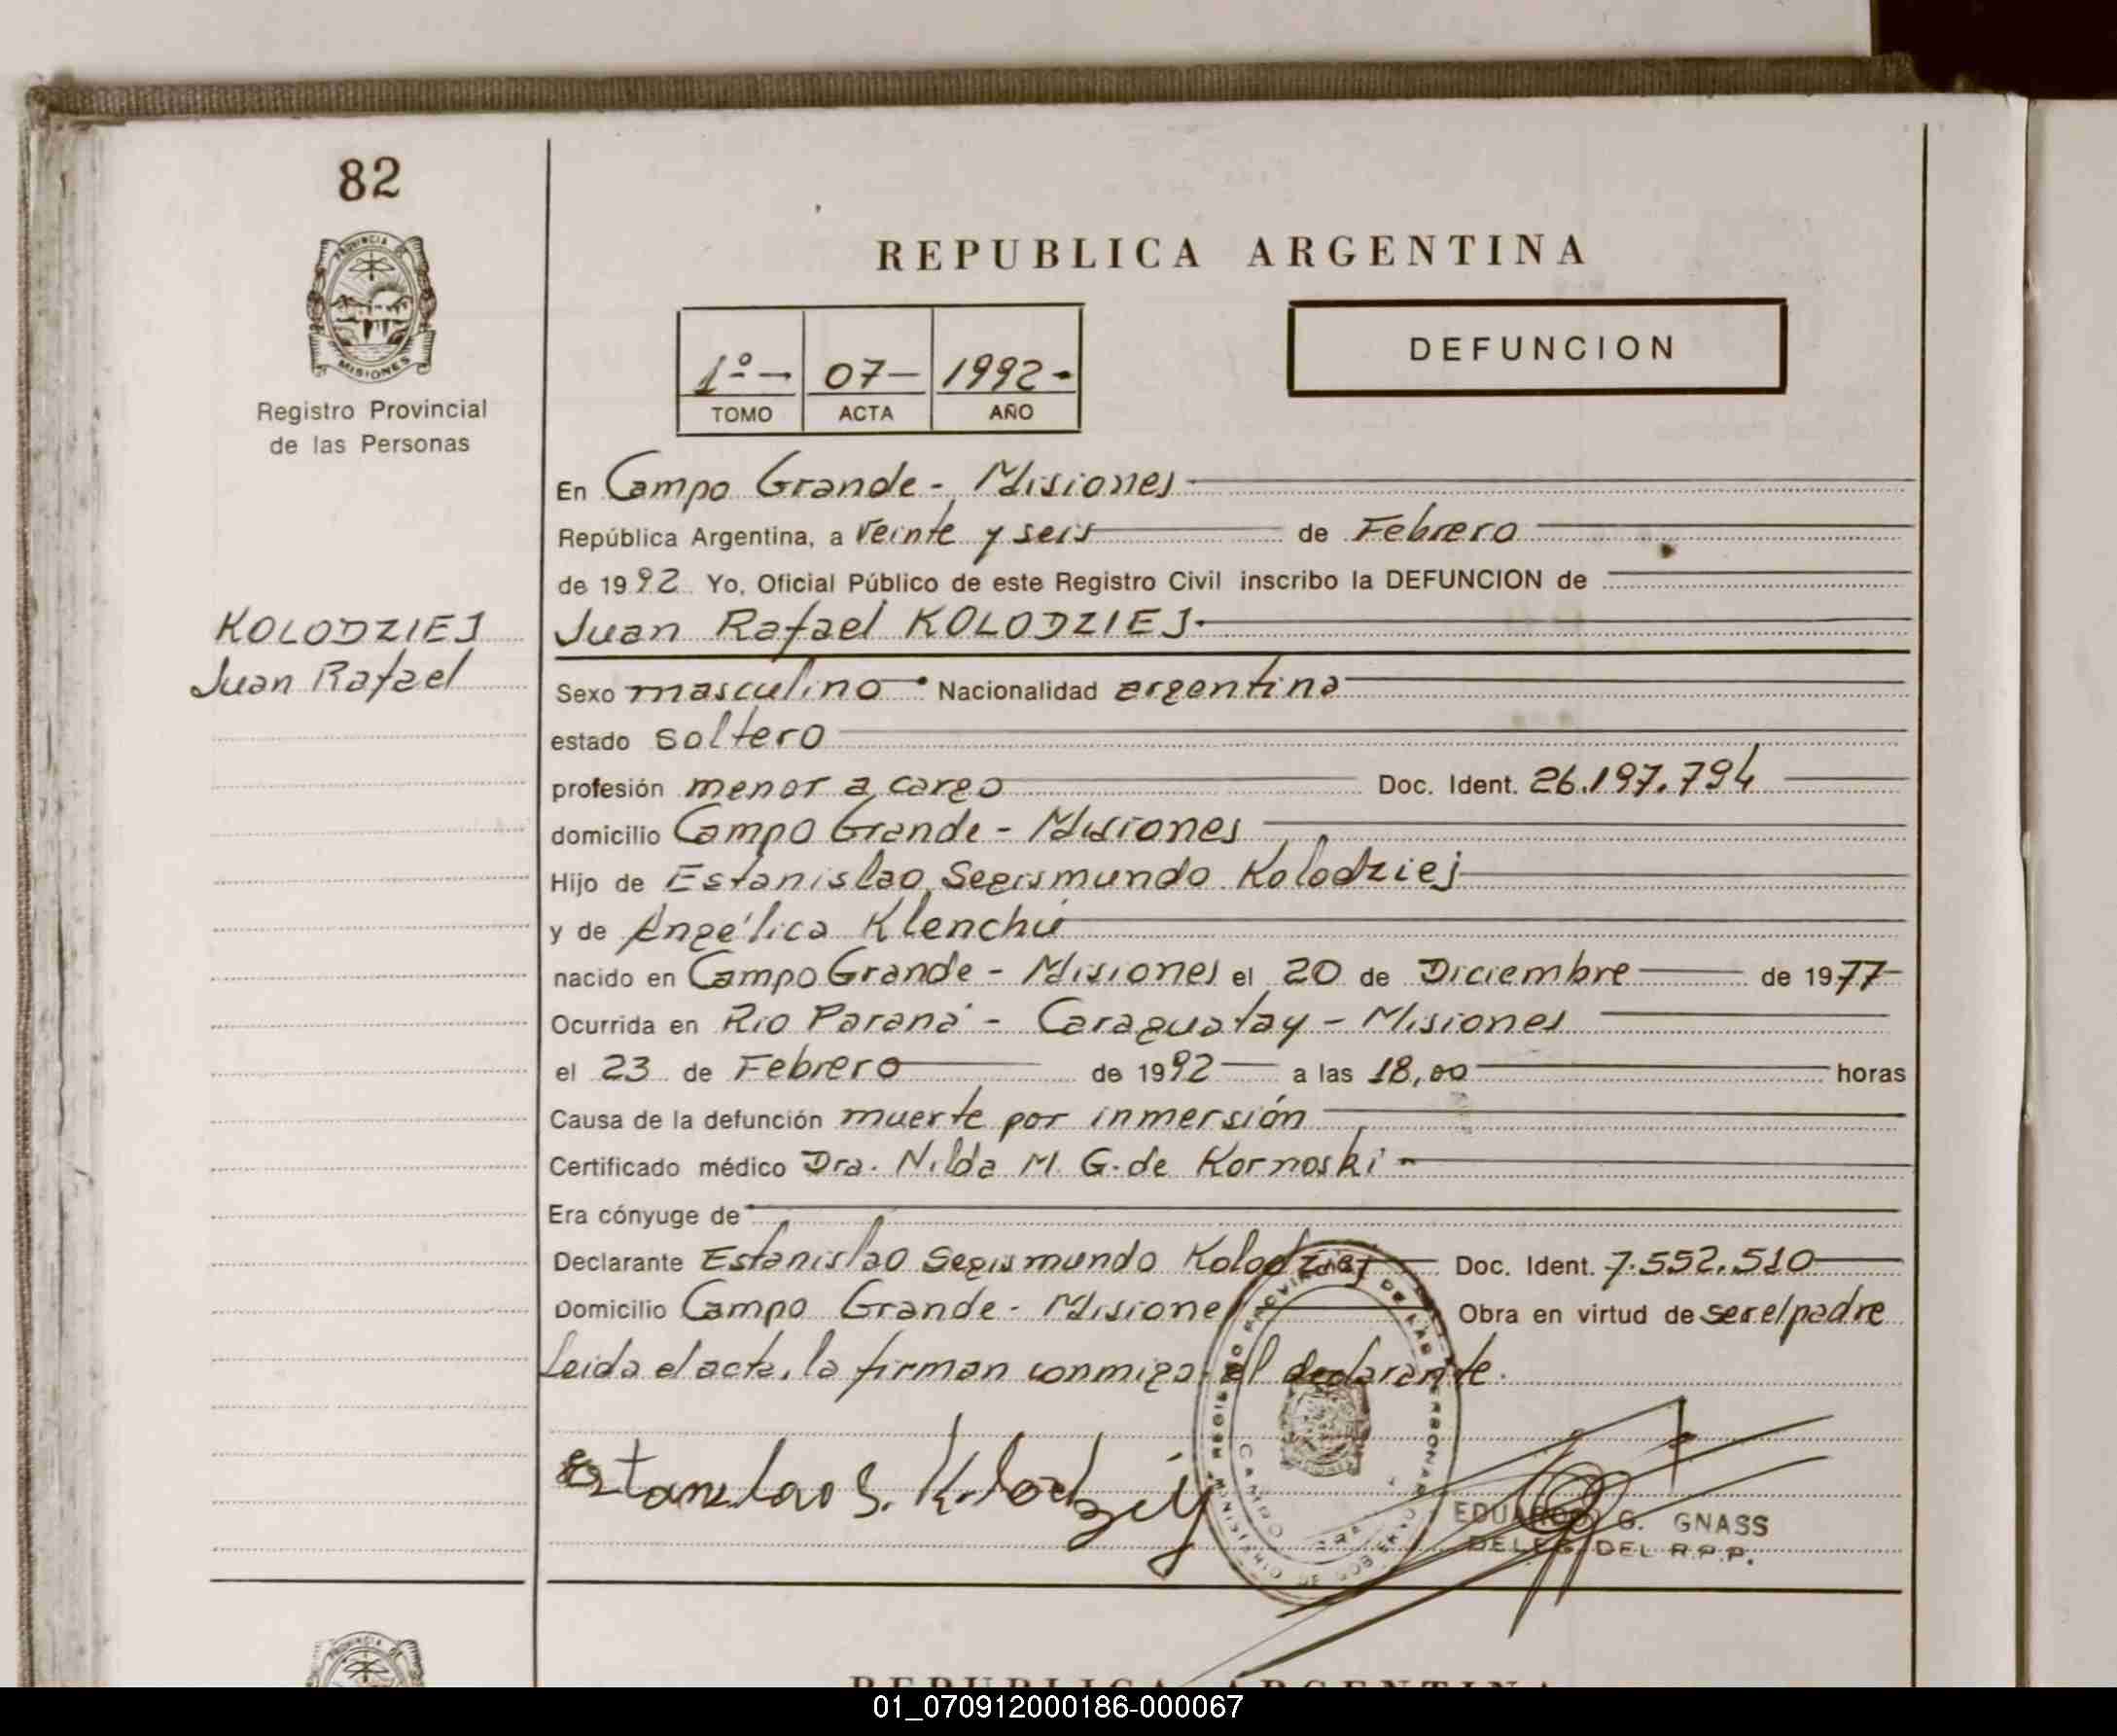 82
PROVINCIA DE
MISIONES
Registro Provincial
de las Personas
KOLODZIEJ
Juan Rafael
REPUBLICA ARGENTINA
1º - 07 - 1992 -
TOMO ACTA AÑO
DEFUNCION
En Campo Grande - Misiones
República Argentina, a veinte y seis de Febrero
de 1992 Yo, Oficial Público de este Registro Civil inscribo la DEFUNCION de
Juan Rafael KOLODZIEJ.
Sexo masculino. Nacionalidad argentina
estado soltero
profesión menor a cargo Doc. Ident. 26.197.794
domicilio Campo Grande - Misiones
Hijo de Estanislao Segismundo Kolodziej
y de Angélica Klenchú
nacido en Campo Grande - Misiones el 20 de Diciembre de 1977
Ocurrida en Río Paraná - Caraguatay - Misiones
el 23 de Febrero de 1992 a las 18,00 horas
Causa de la defunción muerte por inmersión
Certificado médico Dra. Nilda M. G. de Kornoski -
Era cónyuge de
Declarante Estanislao Segismundo Kolodziej Doc. Ident. 7.552.510
Domicilio Campo Grande - Misiones Obra en virtud de ser el padre
Leida el acta, la firman conmigo el declarante.
Estanislao S. Kolodziej
EDUARDO G. GNASS
DELEG. DEL R.P.P.
REPUBLICA ARGENTINA
01_070912000186-000067